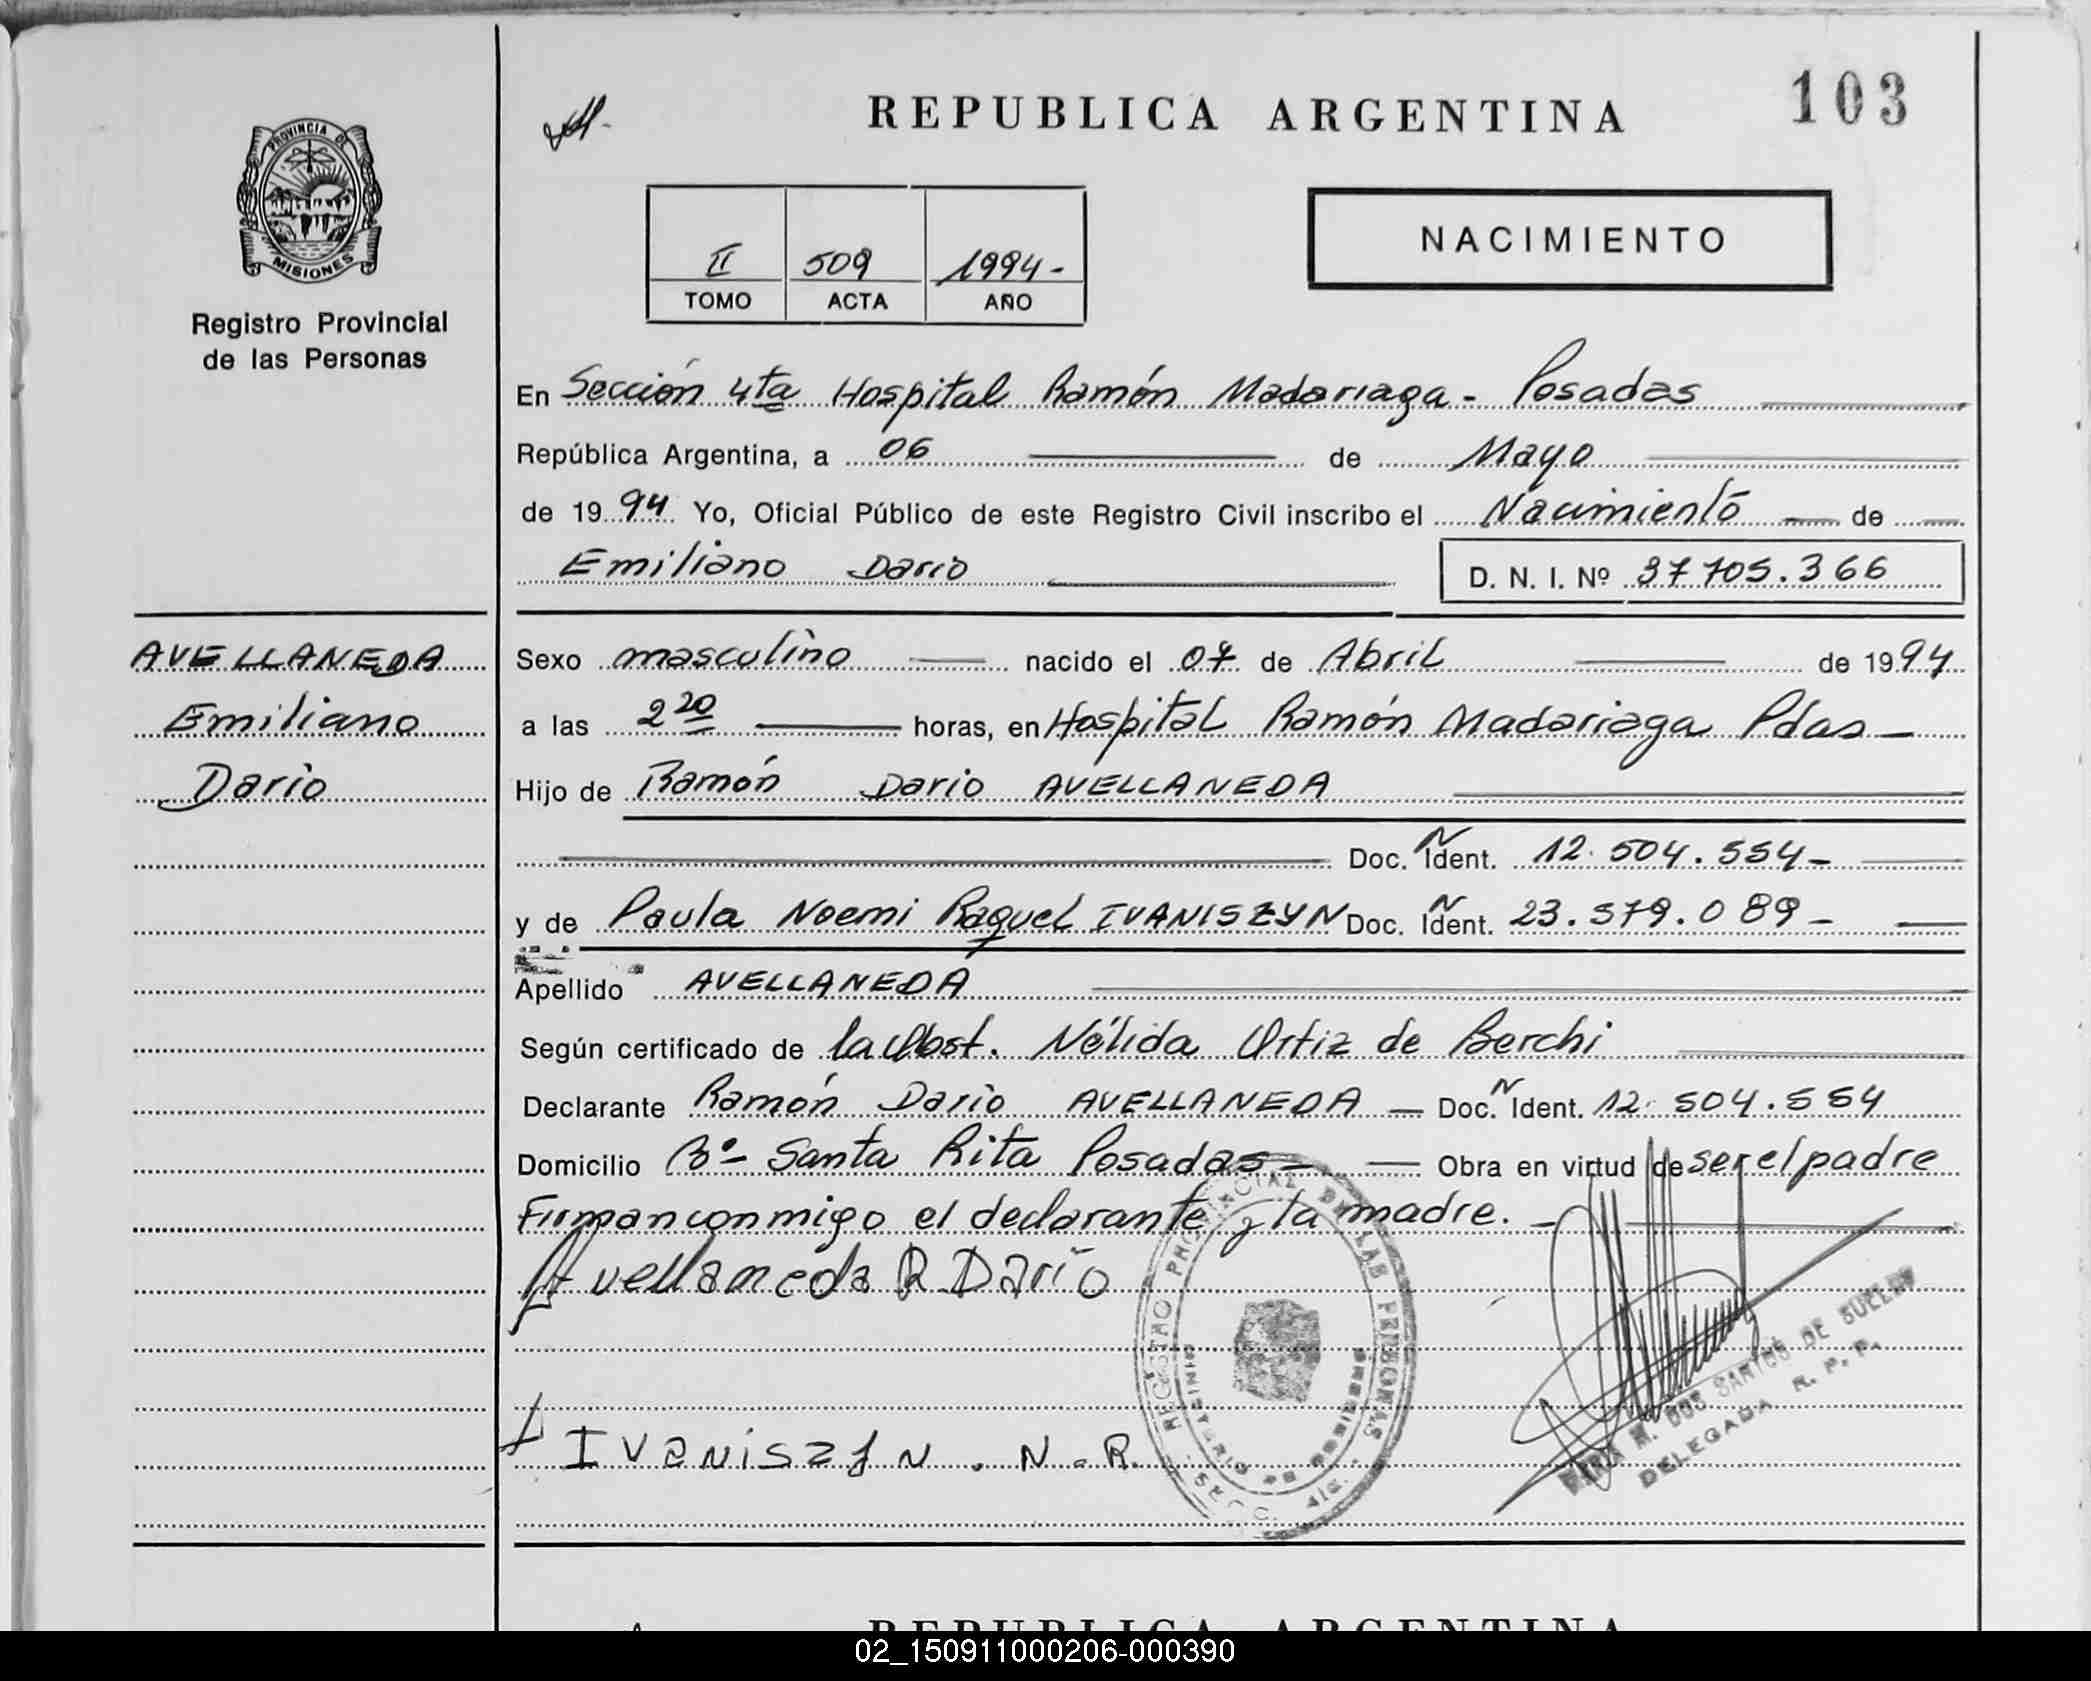 103
REPUBLICA ARGENTINA
PROVINCIA DE
MISIONES
Registro Provincial
de las Personas
II 509 1994-
TOMO ACTA AÑO
NACIMIENTO
En Sección 4ta Hospital Ramón Madariaga - Posadas
República Argentina, a 06 de Mayo
de 1994 Yo, Oficial Público de este Registro Civil inscribo el Nacimiento de
Emiliano Dario D. N. I. Nº 37705.366
AVELLANEDA
Emiliano
Dario
Sexo masculino nacido el 07 de Abril de 1994
a las 2 20 horas, en Hospital Ramón Madariaga Pdas
Hijo de Ramón Dario AVELLANEDA
Doc. Ident. N 12.504.554-
y de Paula Noemi Raquel IVANISZYN Doc. Ident. N 23.579.089-
Apellido AVELLANEDA
Según certificado de la Obst. Nélida Ortiz de Berchi
Declarante Ramón Dario AVELLANEDA Doc. N Ident. 12.504.554
Domicilio Bº- Santa Rita Posadas- Obra en virtud de ser el padre
Firman conmigo el declarante y la madre.
Avellaneda R Dario
IVANISZYN . N . R.
REGISTRO PROVINCIAL DE LAS PERSONAS
M. DOS SANTOS DE
DELEGADA R. P. P.
REPUBLICA ARGENTINA
02_150911000206-000390